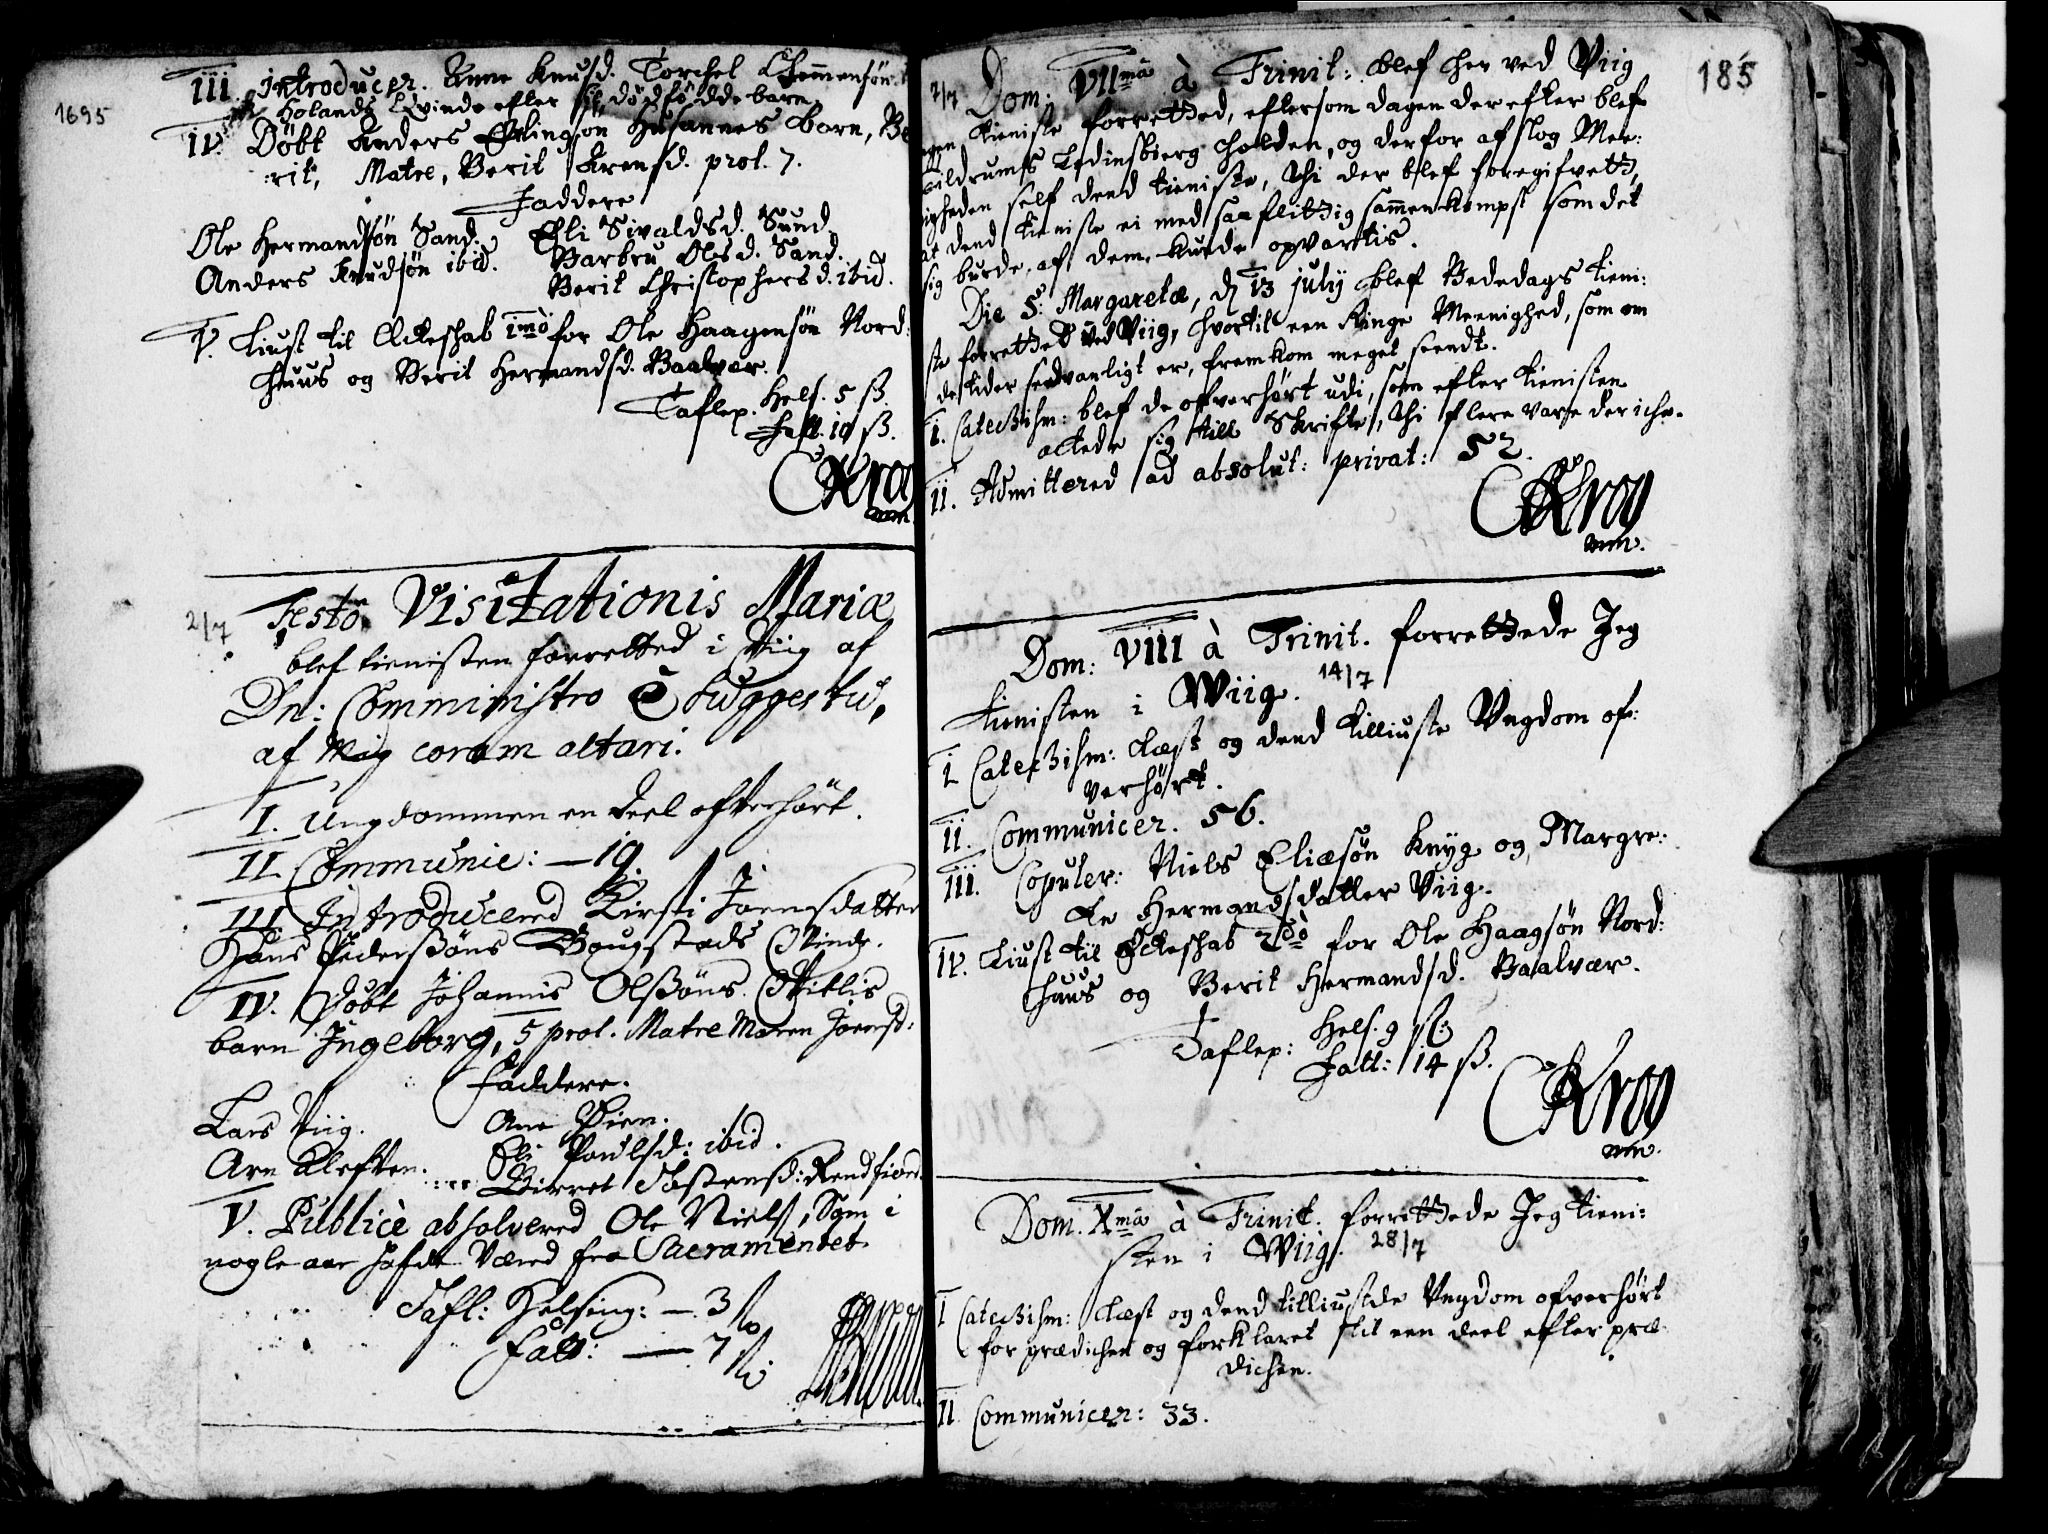 1695
III. Introducer. Anne Knudsd. Torchel Clemmensøn
Holands Qvinde efter sit dødfødde barn.
IV. Døbt Anders Erlingsøn Husannes barn, Be
:rit, Matre, Berit Arensd. prol. 7.
Faddere
Ole Hermandsøn Sand. Elli Sivaldsd. Sund.
Anders Knudsøn ibid. Barbru Olsd. Sand.
Berit Christophersd. ibid.
V. Liust til Ecteskab 1mô for Ole Haagensøn Nord:
huus og Berit Hermandsd. Baalvær.
Taflep. Hels. 5 ß.
Fatt. 10 ß.
CKrog
mm.
2/7 Festo Visitationis Mariæ
blef tienisten forretted i Viig af
Dn: Comministro è suggestu,
af Mig coram altari.
I. Ungdommen en deel ofverhørt.
II. Communic: — 19.
III. Introducered Kirsti Joensdatter
Hans Pederßøns Gougstads Qvinde.
IV. Døbt Johannis Olßøns Vitlis
barn Ingeborg, 5 prol. Matre Maren Joensd:
Faddere.
Lars Viig. Ane Vien.
Arn Kleften. Eli Poulsd: ibid.
Birret Tostensd: Rendfiord
V. Publicè absolvered Ole Niels, Som i
nogle aar hafde Væred fra Sacramentet
Tafl: Helsing: — 3 ß
Fatt: — 7 ß
185
2/7 Dom. VIImâ à Trinit: blef her ved Viig
ingen tieniste forretted, eftersom dagen der efter blef
Ledinsbierg holden, og derfor afslog Mee:
nigheden self dend tieniste, thi der blef foregifvett,
at dend tieniste ei med saa flittig sammenkompst som det
sig burde, af dem kunde opvartis.
Die S: Margaretæ, d 13 julij blef Bededags tieni:
ste forretted ved Viig, hvortil een Ringe Meenighed, som om
de tider sedvanligt er, fremkom meget seendt.
I. Catechism: blef de ofverhørt udi, som efter tienisten
actede sig till Skrifte, thi flere vare der iche.
II. Admittered ad absolut: privat: 52.
CKrog
mm.
Dom: VIII à Trinit. forrettede Jeg
tienisten i Wiig. 14/7
I Catechism: Læst og dend tilliuste Ungdom of:
verhørt.
II. Communicer. 56.
III. Copuler: Niels Eliæsøn Knyg og Margre:
te Hermandsdatter Viig.
IV. Liust til Ecteskab 2dò for Ole Haagsøn Nord:
huus og Berit Hermandsd. Baalvær.
Taflep: Hels. 9 ß:
Fatt: 14 ß.
CKrog
mm.
Dom. Xmâ à Trinit. forrettede Jeg tieni:
sten i Wiig. 28/7
I Catechism: Læst og dend tilliustde Ungdom ofverhørt
for prædichen og forklaret til een deel efter præ:
dichen.
II Communicer: 33.